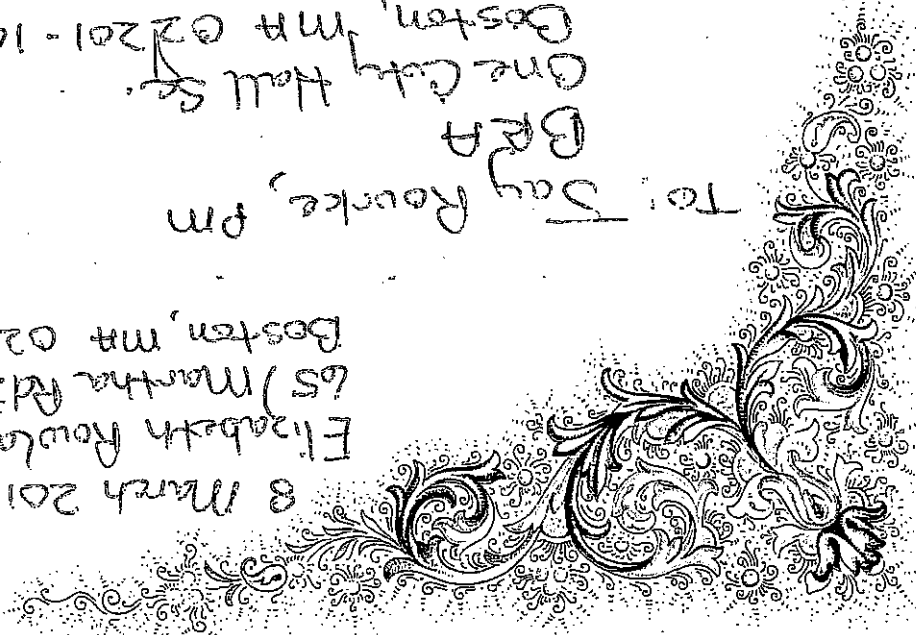 8 March 201
Elizabeth Rowla
65 Martha Rd
Boston, MA 02
To: Jay Rourke, PM
BRA
One City Hall Sq.
Boston, MA 02201-10